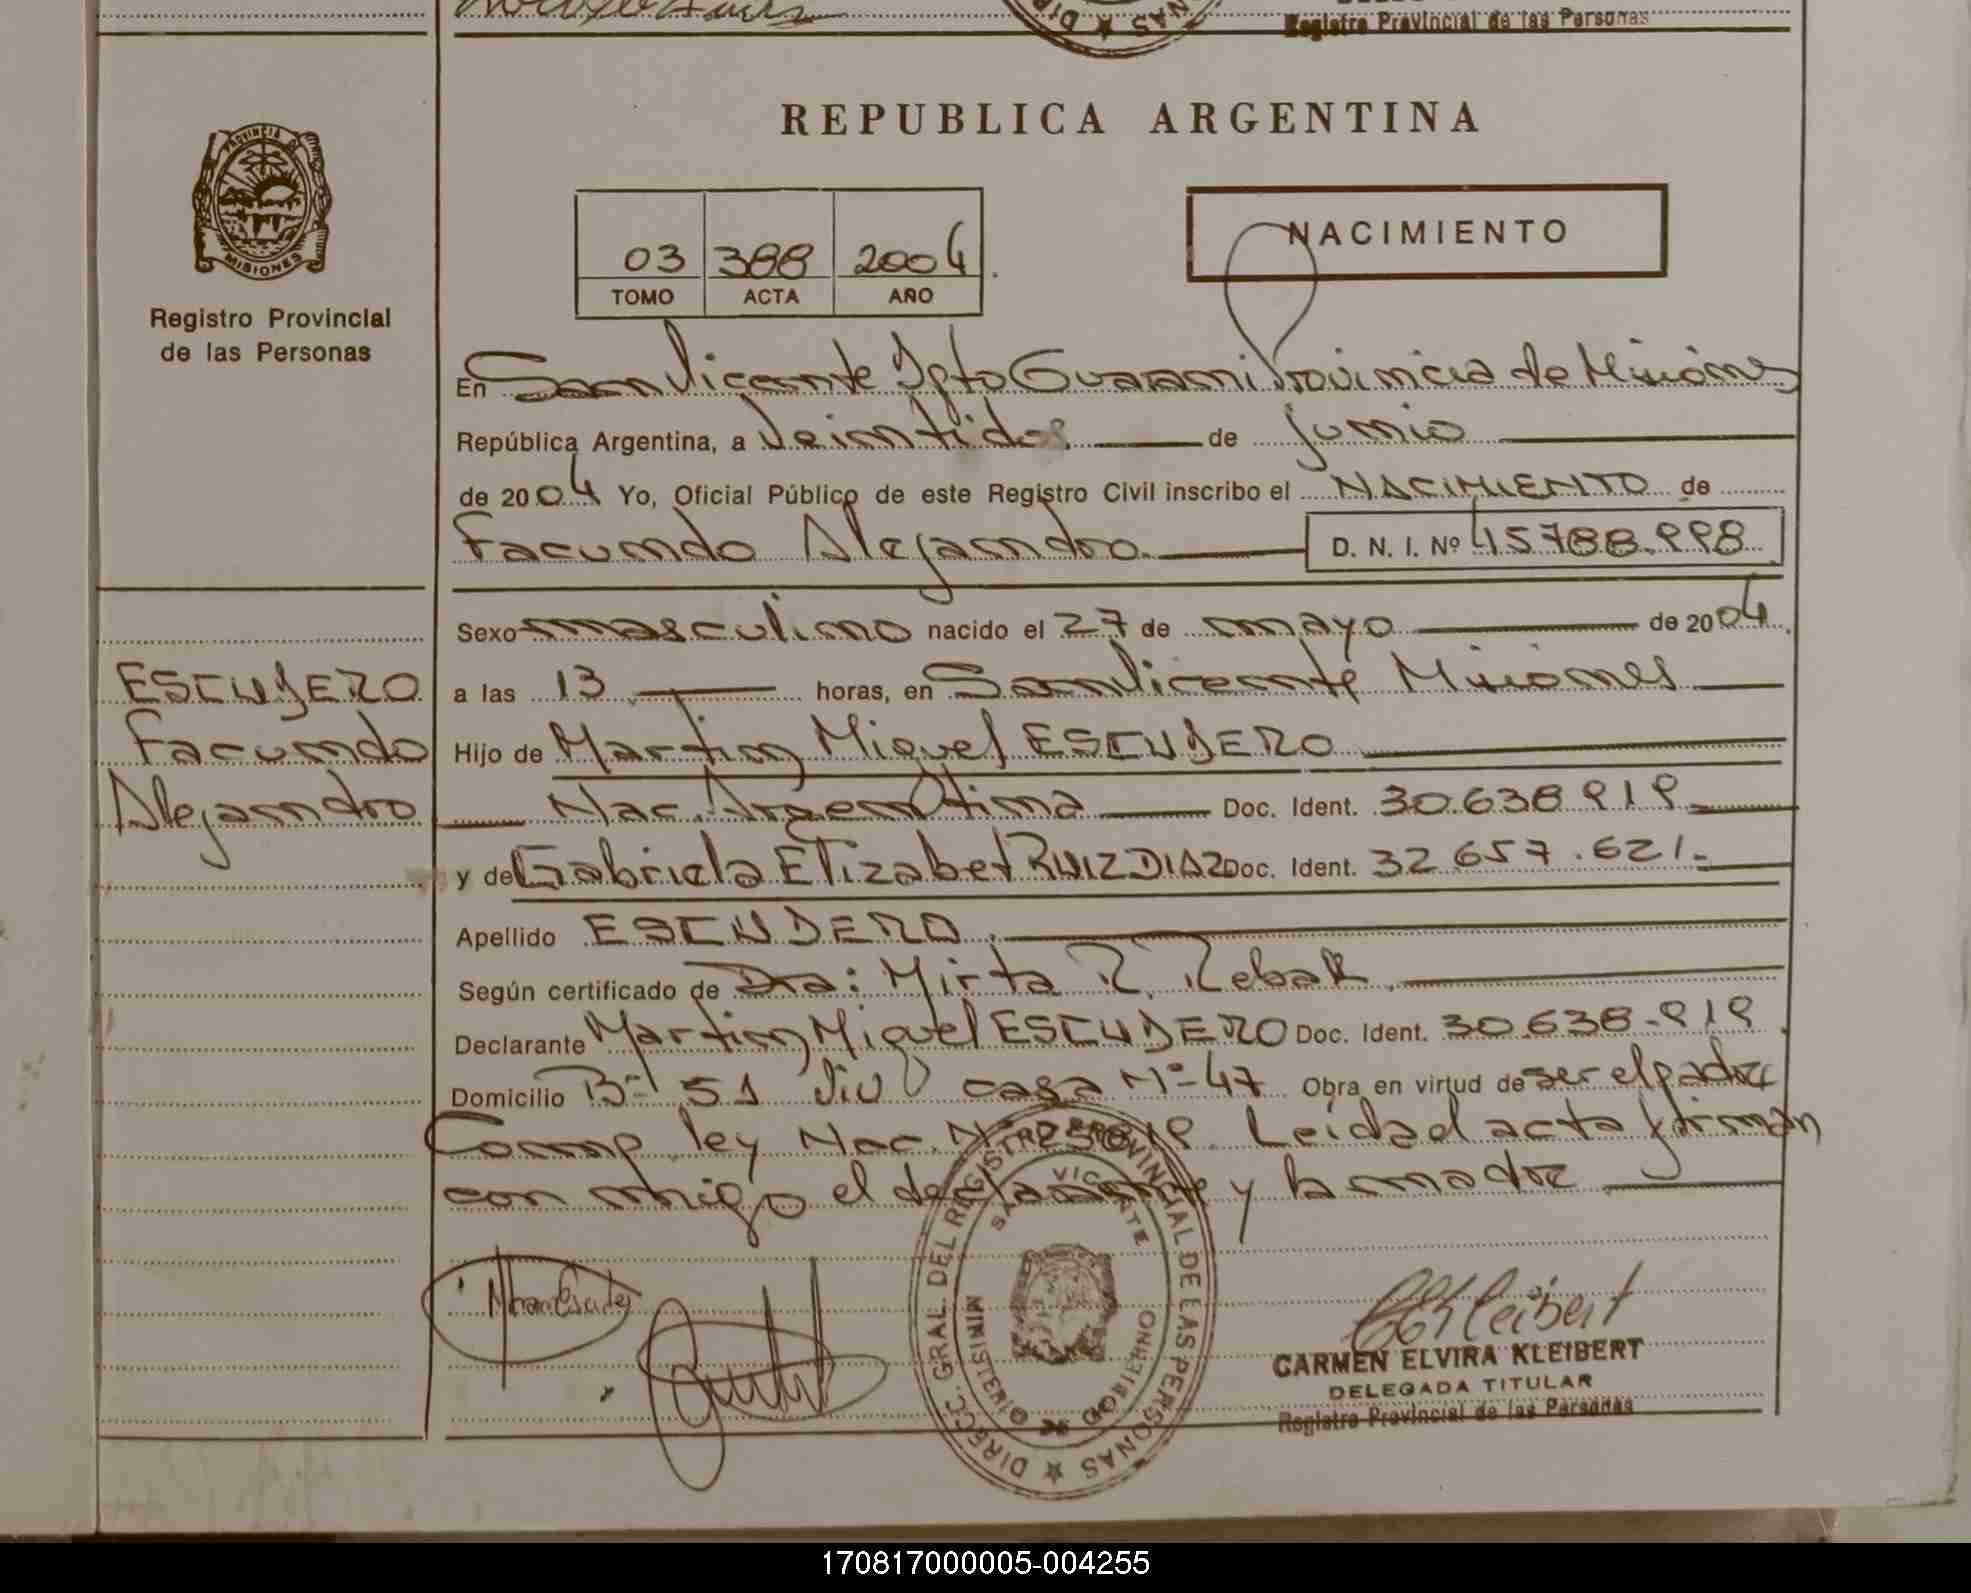 Registro Provincial de las Personas
REPUBLICA ARGENTINA
PROVINCIA DE
MISIONES
Registro Provincial
de las Personas
03 388 2004
TOMO ACTA AÑO
NACIMIENTO
En San Vicente Dpto Guarani Provincia de Misiones
República Argentina, a Veintidos de junio
de 2004 Yo, Oficial Público de este Registro Civil inscribo el NACIMIENTO de
Facundo Alejandro D. N. I. Nº 45788.998
Sexo masculino nacido el 27 de mayo de 2004
a las 13 horas, en San Vicente Misiones
ESCUDERO
Facundo
Alejandro
Hijo de Martin Miguel ESCUDERO
Nac. Argentina Doc. Ident. 30.638.919
y de Gabriela Elizabet RUIZ DIAZ Doc. Ident. 32.657.621.
Apellido ESCUDERO.
Según certificado de Dra: Mirta R. Rebak.
Declarante Martin Miguel ESCUDERO Doc. Ident. 30.638.919
Domicilio Bº 51 Viv casa Nº 47 Obra en virtud de ser el padre
Comp. ley Nac. Nº Leida el acta firman
con migo el declarante y la madre
DIRECC. GRAL. DEL REGISTRO PROVINCIAL DE LAS PERSONAS
SAN VICENTE
MINISTERIO GOBIERNO
CARMEN ELVIRA KLEIBERT
DELEGADA TITULAR
Registro Provincial de las Personas
170817000005-004255